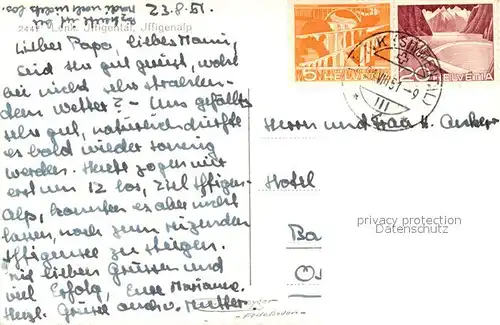 23.8.51.
2447 Lenk. Iffigental, Iffigenalp
Lieber Papa, liebes Mami,
Seid Ihr gut gereist, wohl
bei nicht sehr strahlen-
dem Wetter? - Uns gefällts
sehr gut, natürlich dürfte
es bald wieder sonnig
werden. Heute zogen wir
erst um 12 los, Ziel Iffigen-
Alp, konnten es aber nicht
lassen, noch zum reizenden
Iffigensee zu steigen.
Mit lieben Grüssen und
viel Erfolg, Eure Marianne.
Herzl. Grüsse auch v. Mutter.
HELVETIA
5
HELVETIA
20
LENK (SIMMENTAL)
VIII 51 - 9
Herrn und Frau H. Anker
Hotel
Ba
privacy protection
Datenschutz